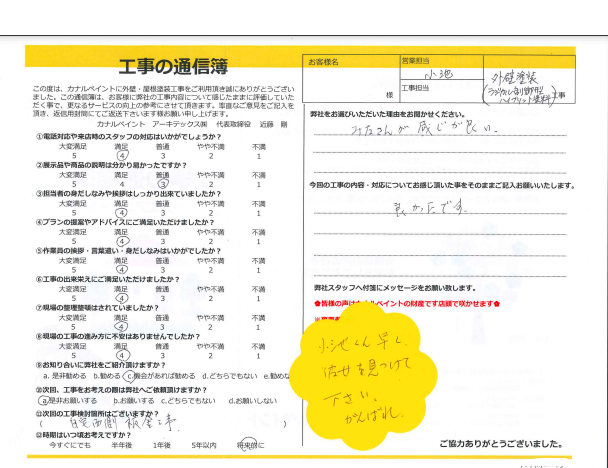 工事の通信簿
この度は、カナルペイントに外壁・屋根塗装工事をご利用頂き誠にありがとうござい
ました。この通信簿は、お客様に弊社の工事内容について感じたままに評価していた
だく事で、更なるサービスの向上の参考にさせて頂きます。率直なご意見をご記入を
頂き、返信用封筒にてご返送下さいます様お願い申し上げます。
カナルペイント アーキテックス㈱ 代表取締役 近藤 剛
①電話対応や来店時のスタッフの対応はいかがでしょうか?
大変満足 満足 普通 やや不満 不満
5 4 3 2 1
②展示品や商品の説明は分かり易かったですか?
大変満足 満足 普通 やや不満 不満
5 4 3 2 1
③担当者の身だしなみや挨拶はしっかり出来ていましたか?
大変満足 満足 普通 やや不満 不満
5 4 3 2 1
④プランの提案やアドバイスにご満足いただけましたか?
大変満足 満足 普通 やや不満 不満
5 4 3 2 1
⑤作業員の挨拶・言葉遣い・身だしなみはいかがでしたか?
大変満足 満足 普通 やや不満 不満
5 4 3 2 1
⑥工事の出来栄えにご満足いただけましたか?
大変満足 満足 普通 やや不満 不満
5 4 3 2 1
⑦現場の整理整頓はされていましたか?
大変満足 満足 普通 やや不満 不満
5 4 3 2 1
⑧現場の工事の進み方に不安はありませんでしたか?
大変満足 満足 普通 やや不満 不満
5 4 3 2 1
⑨お知り合いに弊社をご紹介頂けますか?
a. 是非勧める b.勧める c.機会があれば勧める d.どちらでもない e.勧めな
⑩次回、工事をお考えの際は弊社へご依頼頂けますか?
a.是非お願いする b.お願いする c.どちらでもない d.お願いしない
⑪次回の工事検討箇所はございますか?
( 面側 板金工事. )
⑫時期はいつ頃お考えですか?
今すぐにでも 半年後 1年後 5年以内 将来的に
お客様名 様
営業担当 小池
工事担当
外壁塗装
ハイブリット塗料) 工事
弊社をお選びいただいた理由をお聞かせください。
みなさんが感じが良い.
今回の工事の内容・対応についてお感じ頂いた事をそのままご記入お願いいたします。
良かったです.
弊社スタッフへ付箋にメッセージをお願い致します。
✿皆様の声はカナルペイントの財産です店頭で咲かせます✿
小池くん 早く、
彼女を見つけて
下さい.
がんばれ.
ご協力ありがとうございました。